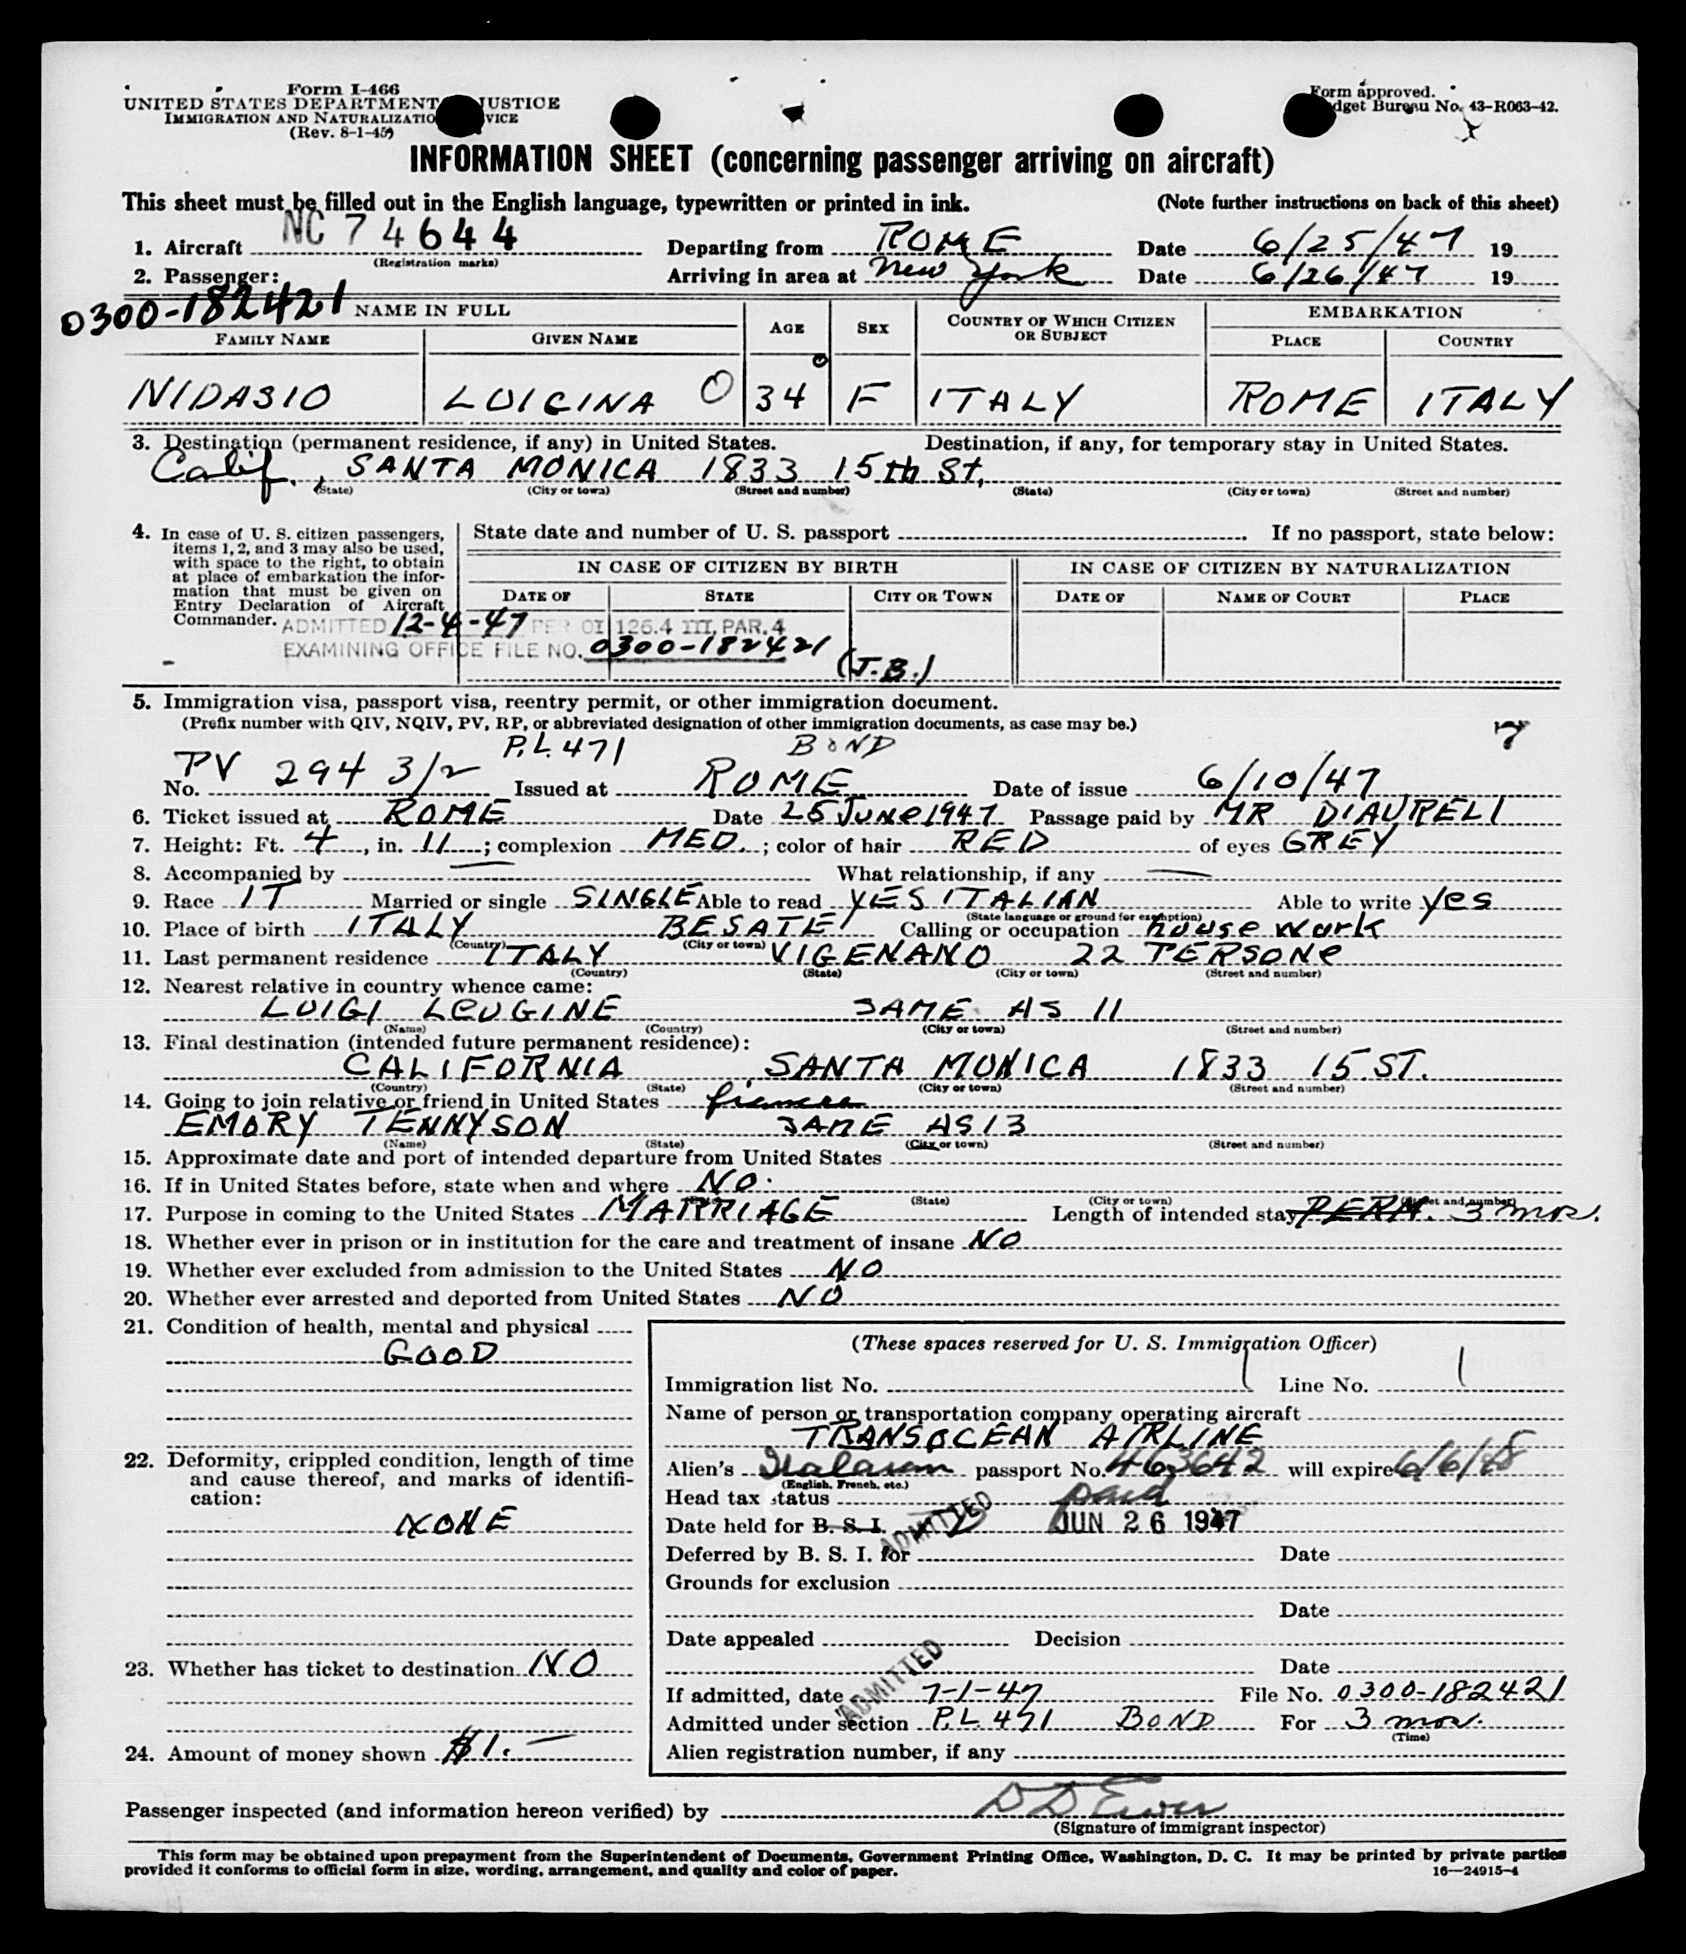 Form I-466
UNITED STATES DEPARTMENT JUSTICE
IMMIGRATION AND NATURALIZATIO VICE
(Rev. 8-1-45)
Form approved.
dget Bureau No. 43-R063-42.
INFORMATION SHEET (concerning passenger arriving on aircraft)
This sheet must be filled out in the English language, typewritten or printed in ink. (Note further instructions on back of this sheet)
1. Aircraft NC 74644 Departing from ROME Date 6/25/47 19
(Registration marks)
2. Passenger: Arriving in area at New York Date 6/26/47 19
0300-182421 NAME IN FULL AGE SEX COUNTRY OF WHICH CITIZEN OR SUBJECT EMBARKATION
FAMILY NAME GIVEN NAME PLACE COUNTRY
NIDASIO LUIGINA O 34 F ITALY ROME ITALY
3. Destination (permanent residence, if any) in United States. Destination, if any, for temporary stay in United States.
Calif., SANTA MONICA 1833 15th St,
(State) (City or town) (Street and number) (State) (City or town) (Street and number)
4. In case of U. S. citizen passengers, items 1, 2, and 3 may also be used, with space to the right, to obtain at place of embarkation the information that must be given on Entry Declaration of Aircraft Commander.
State date and number of U. S. passport . If no passport, state below:
IN CASE OF CITIZEN BY BIRTH IN CASE OF CITIZEN BY NATURALIZATION
DATE OF STATE CITY OR TOWN DATE OF NAME OF COURT PLACE
ADMITTED 12-4-47 PER OI 126.4 III, PAR. 4
EXAMINING OFFICE FILE NO. 0300-182421 (J.B.)
5. Immigration visa, passport visa, reentry permit, or other immigration document.
(Prefix number with QIV, NQIV, PV, RP, or abbreviated designation of other immigration documents, as case may be.) 7
P.L. 471 BOND
No. PV 294 3/2 Issued at ROME Date of issue 6/10/47
6. Ticket issued at ROME Date 25 June 1947 Passage paid by MR DIAURELI
7. Height: Ft. 4, in. 11; complexion MED.; color of hair RED of eyes GREY
8. Accompanied by — What relationship, if any —
9. Race IT Married or single SINGLE Able to read YES ITALIAN Able to write yes
(State language or ground for exemption)
10. Place of birth ITALY BESATE Calling or occupation house work
(Country) (City or town)
11. Last permanent residence ITALY VIGENANO 22 PERSONe
(Country) (State) (City or town) (Street and number)
12. Nearest relative in country whence came:
LUIGI LEUGINE SAME AS 11
(Name) (Country) (City or town) (Street and number)
13. Final destination (intended future permanent residence):
CALIFORNIA SANTA MONICA 1833 15.ST.
(Country) (State) (City or town) (Street and number)
14. Going to join relative or friend in United States fiancee
EMORY TENNYSON SAME AS 13
(Name) (State) (City or town) (Street and number)
15. Approximate date and port of intended departure from United States
16. If in United States before, state when and where NO.
(State) (City or town) (Street and number)
17. Purpose in coming to the United States MARRIAGE Length of intended stay PERM. 3 mos.
18. Whether ever in prison or in institution for the care and treatment of insane NO
19. Whether ever excluded from admission to the United States NO
20. Whether ever arrested and deported from United States NO
21. Condition of health, mental and physical
GOOD
22. Deformity, crippled condition, length of time
and cause thereof, and marks of identifi-
cation:
NONE
23. Whether has ticket to destination NO
24. Amount of money shown $1.—
(These spaces reserved for U. S. Immigration Officer)
Immigration list No. 1 Line No. 1
Name of person or transportation company operating aircraft
TRANSOCEAN AIRLINE
Alien's Italian passport No. 463642 will expire 6/6/48
(English, French, etc.)
Head tax status paid
Date held for B. S. I. ADMITTED JUN 26 1947
Deferred by B. S. I. for Date
Grounds for exclusion
Date
Date appealed Decision
Date
ADMITTED
If admitted, date 7-1-47 File No. 0300-182421
Admitted under section P.L. 471 BOND For 3 mos.
(Time)
Alien registration number, if any
Passenger inspected (and information hereon verified) by
(Signature of immigrant inspector)
This form may be obtained upon prepayment from the Superintendent of Documents, Government Printing Office, Washington, D. C. It may be printed by private parties
provided it conforms to official form in size, wording, arrangement, and quality and color of paper. 16—24915-4